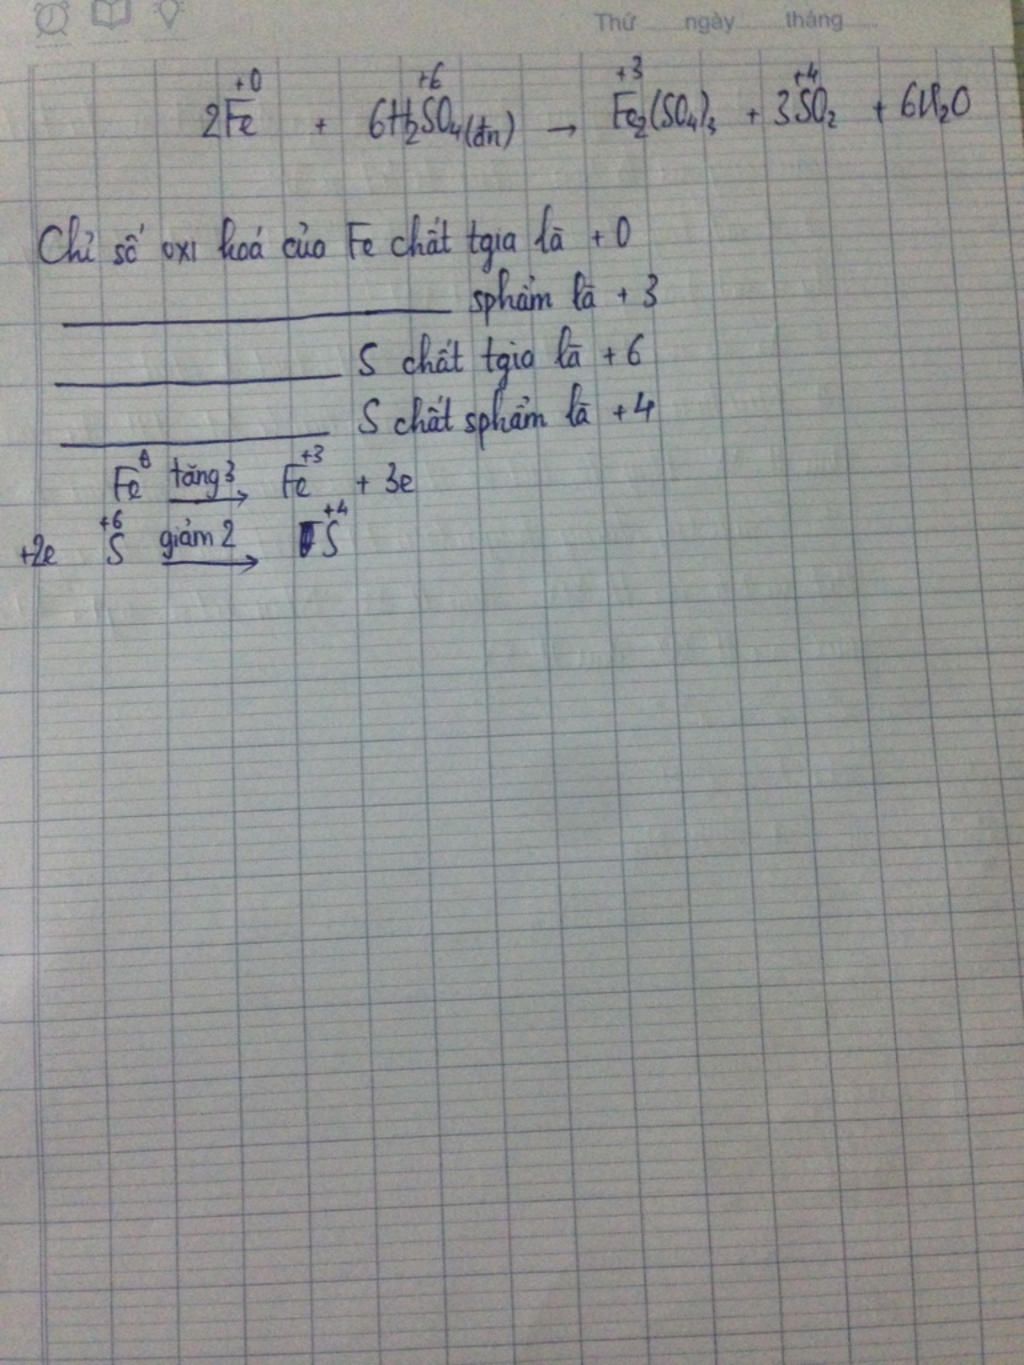 Thứ ngày tháng
+0 +6 +3 +4
2Fe + 6H₂SO₄(đn) → Fe₂(SO₄)₃ + 3SO₂ + 6H₂O
Chỉ số oxi hoá của Fe chất tgia là +0
sphẩm là +3
S chất tgia là +6
S chất sphẩm là +4
Fe⁰ tăng 3 → Fe⁺³ + 3e
+2e S⁺⁶ giảm 2 → S⁺⁴